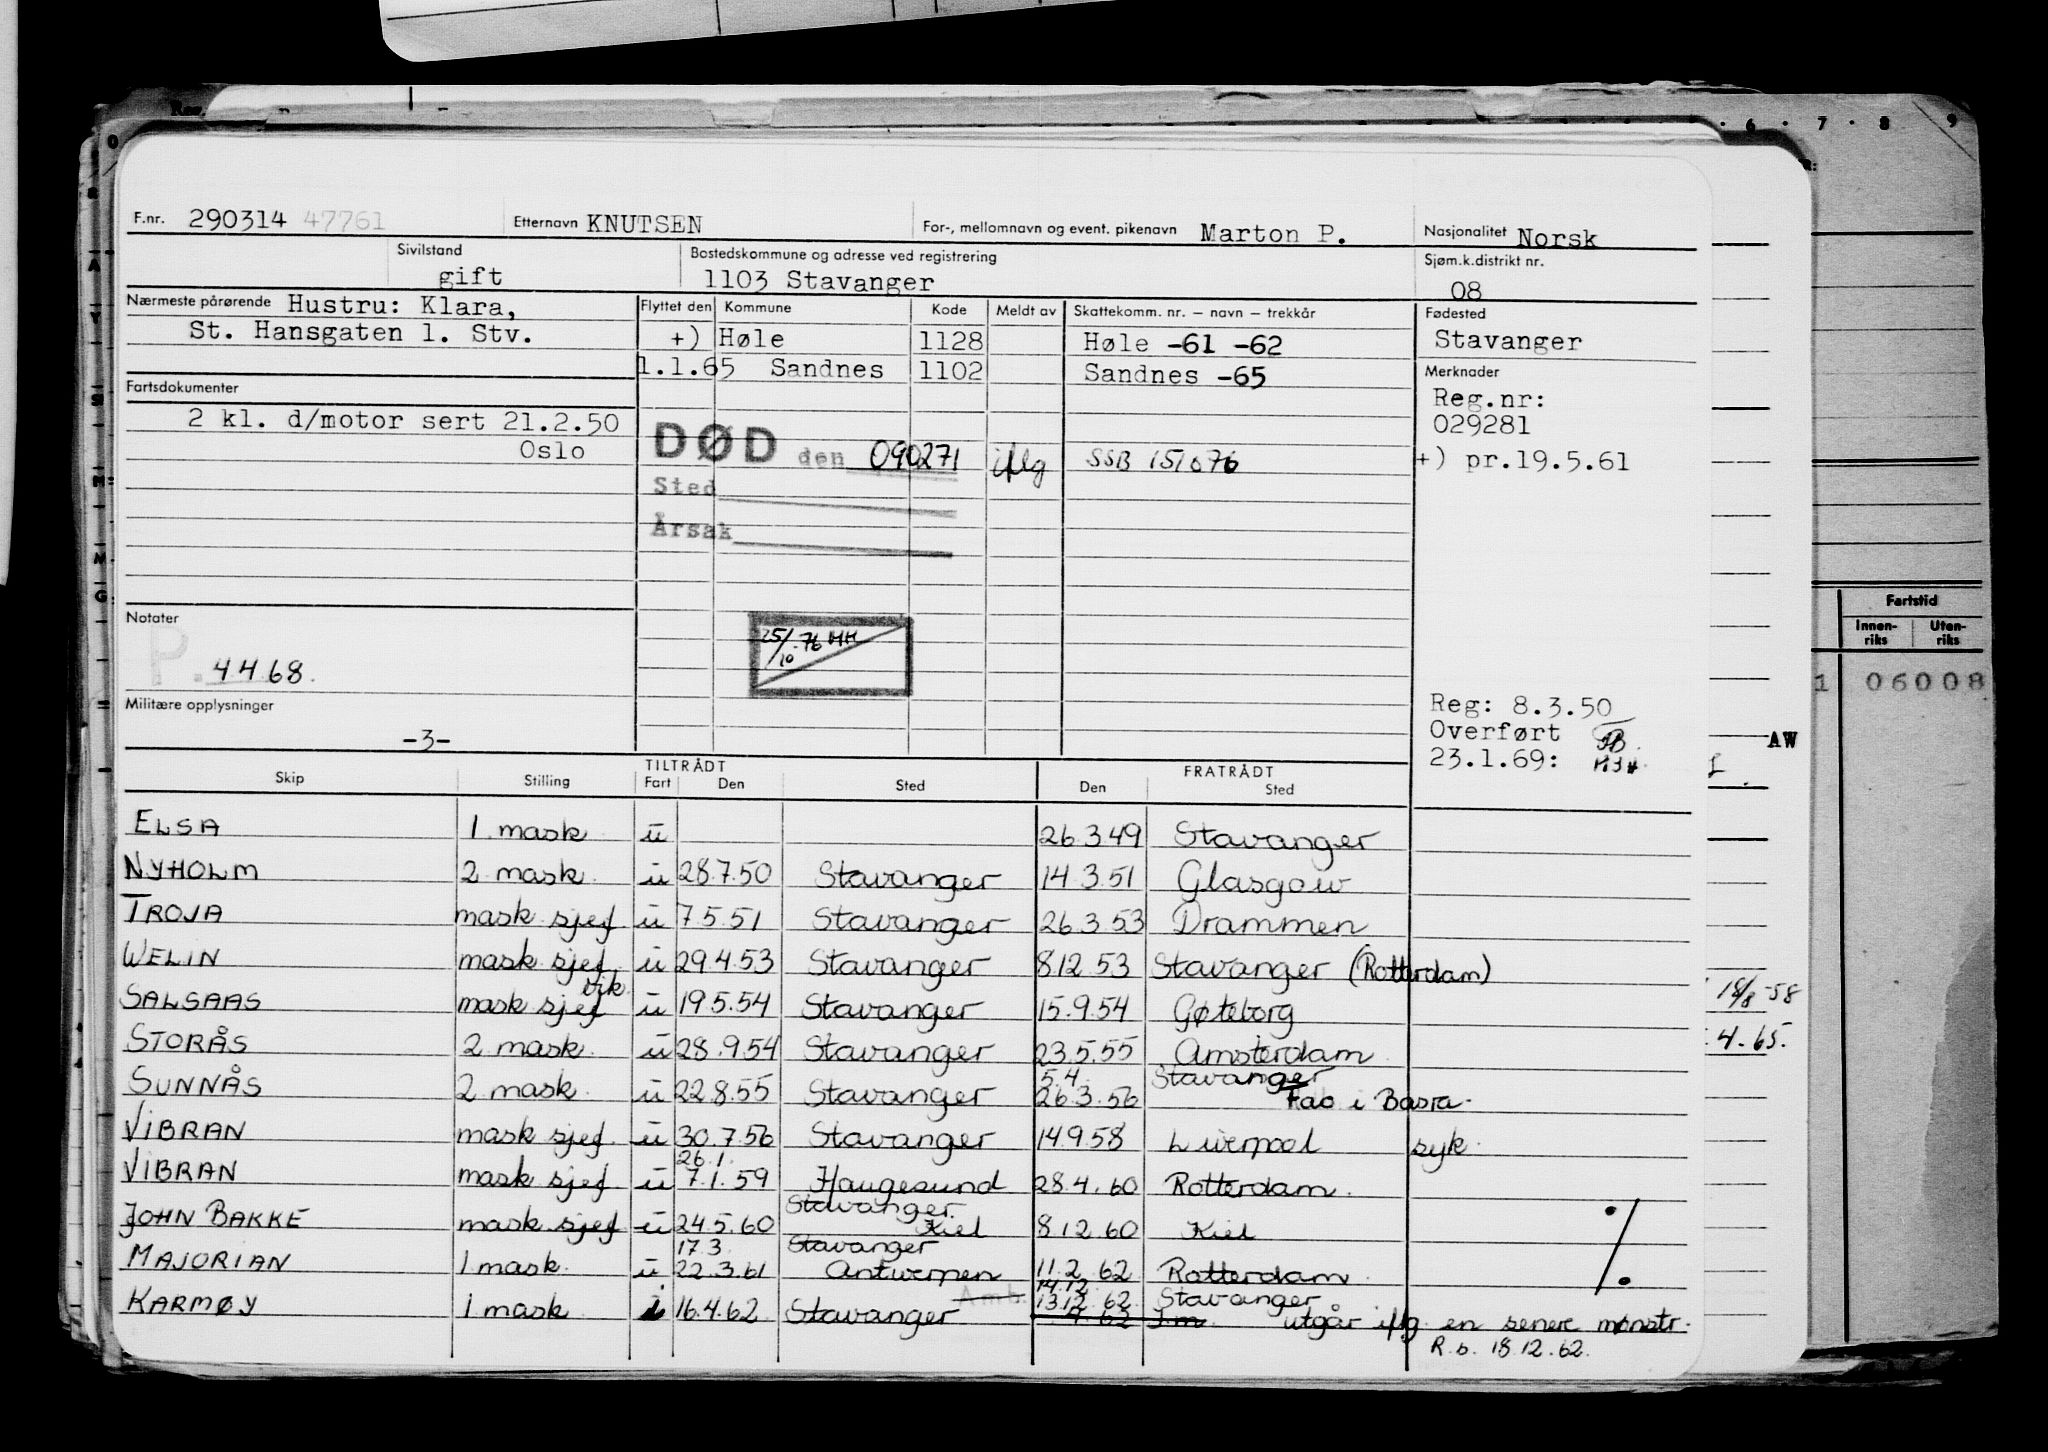 F.nr. 290314 47761 Etternavn KNUTSEN For-, mellomnavn og event. pikenavn Marton P. Nasjonalitet Norsk
Sivilstand Bostedskommune og adresse ved registrering Sjøm.k.distrikt nr.
gift 1103 Stavanger 08
Nærmeste pårørende Hustru: Klara, Flyttet den Kommune Kode Meldt av Skattekomm. nr. – navn – trekkår Fødested
St. Hansgaten 1. Stv. +) Høle 1128 Høle -61 -62 Stavanger
1.1.65 Sandnes 1102 Sandnes -65 Merknader
Fartsdokumenter Reg.nr:
2 kl. d/motor sert 21.2.50 029281
Oslo DØD den 090271 iflg SSB 151076 +) pr.19.5.61
Sted
Årsak
Notater
25/10-76 HH
P. 4468.
Militære opplysninger Reg: 8.3.50
-3- Overført
23.1.69:
AW
TILTRÅDT FRATRÅDT
Skip Stilling Fart Den Sted Den Sted
ELSA 1 mask u 26.3 49 Stavanger
NYHOLM 2 mask. u 28.7.50 Stavanger 14.3.51 Glasgow
TROJA mask sjef u 7.5.51 Stavanger 26.3.53 Drammen
WELIN mask sjef u 29.4.53 Stavanger 8.12.53 Stavanger (Rotterdam)
SALSAAS mask sjef vik. u 19.5.54 Stavanger 15.9.54 Gøteborg
STORÅS 2 mask. u 28.9.54 Stavanger 23.5.55 Amsterdam
5.4. Stavanger
SUNNÅS 2 mask. u 22.8.55 Stavanger 26.3.56 Fao i Basra.
VIBRAN mask sjef. u 30.7.56 Stavanger 14.9.58 Liverpool syk.
26.1.
VIBRAN mask sjef. u 7.1.59 Haugesund 28.4.60 Rotterdam.
Stavanger.
JOHN BAKKE mask sjef u 24.5.60 Kiel 8.12.60 Kiel
17.3. Stavanger
MAJORIAN 1 mask. u 22.3.61 Antwerpen 11.2.62 Rotterdam.
14.12.
Amb. 13.12.62. Stavanger
KARMØY 1 mask i 16.4.62 Stavanger 62 utgår iflg. en senere mønstr.
R.b. 18.12.62.
Fartstid
Innen-riks Uten-riks
1 06008
18/8-58
4-65.
6 7 8 9